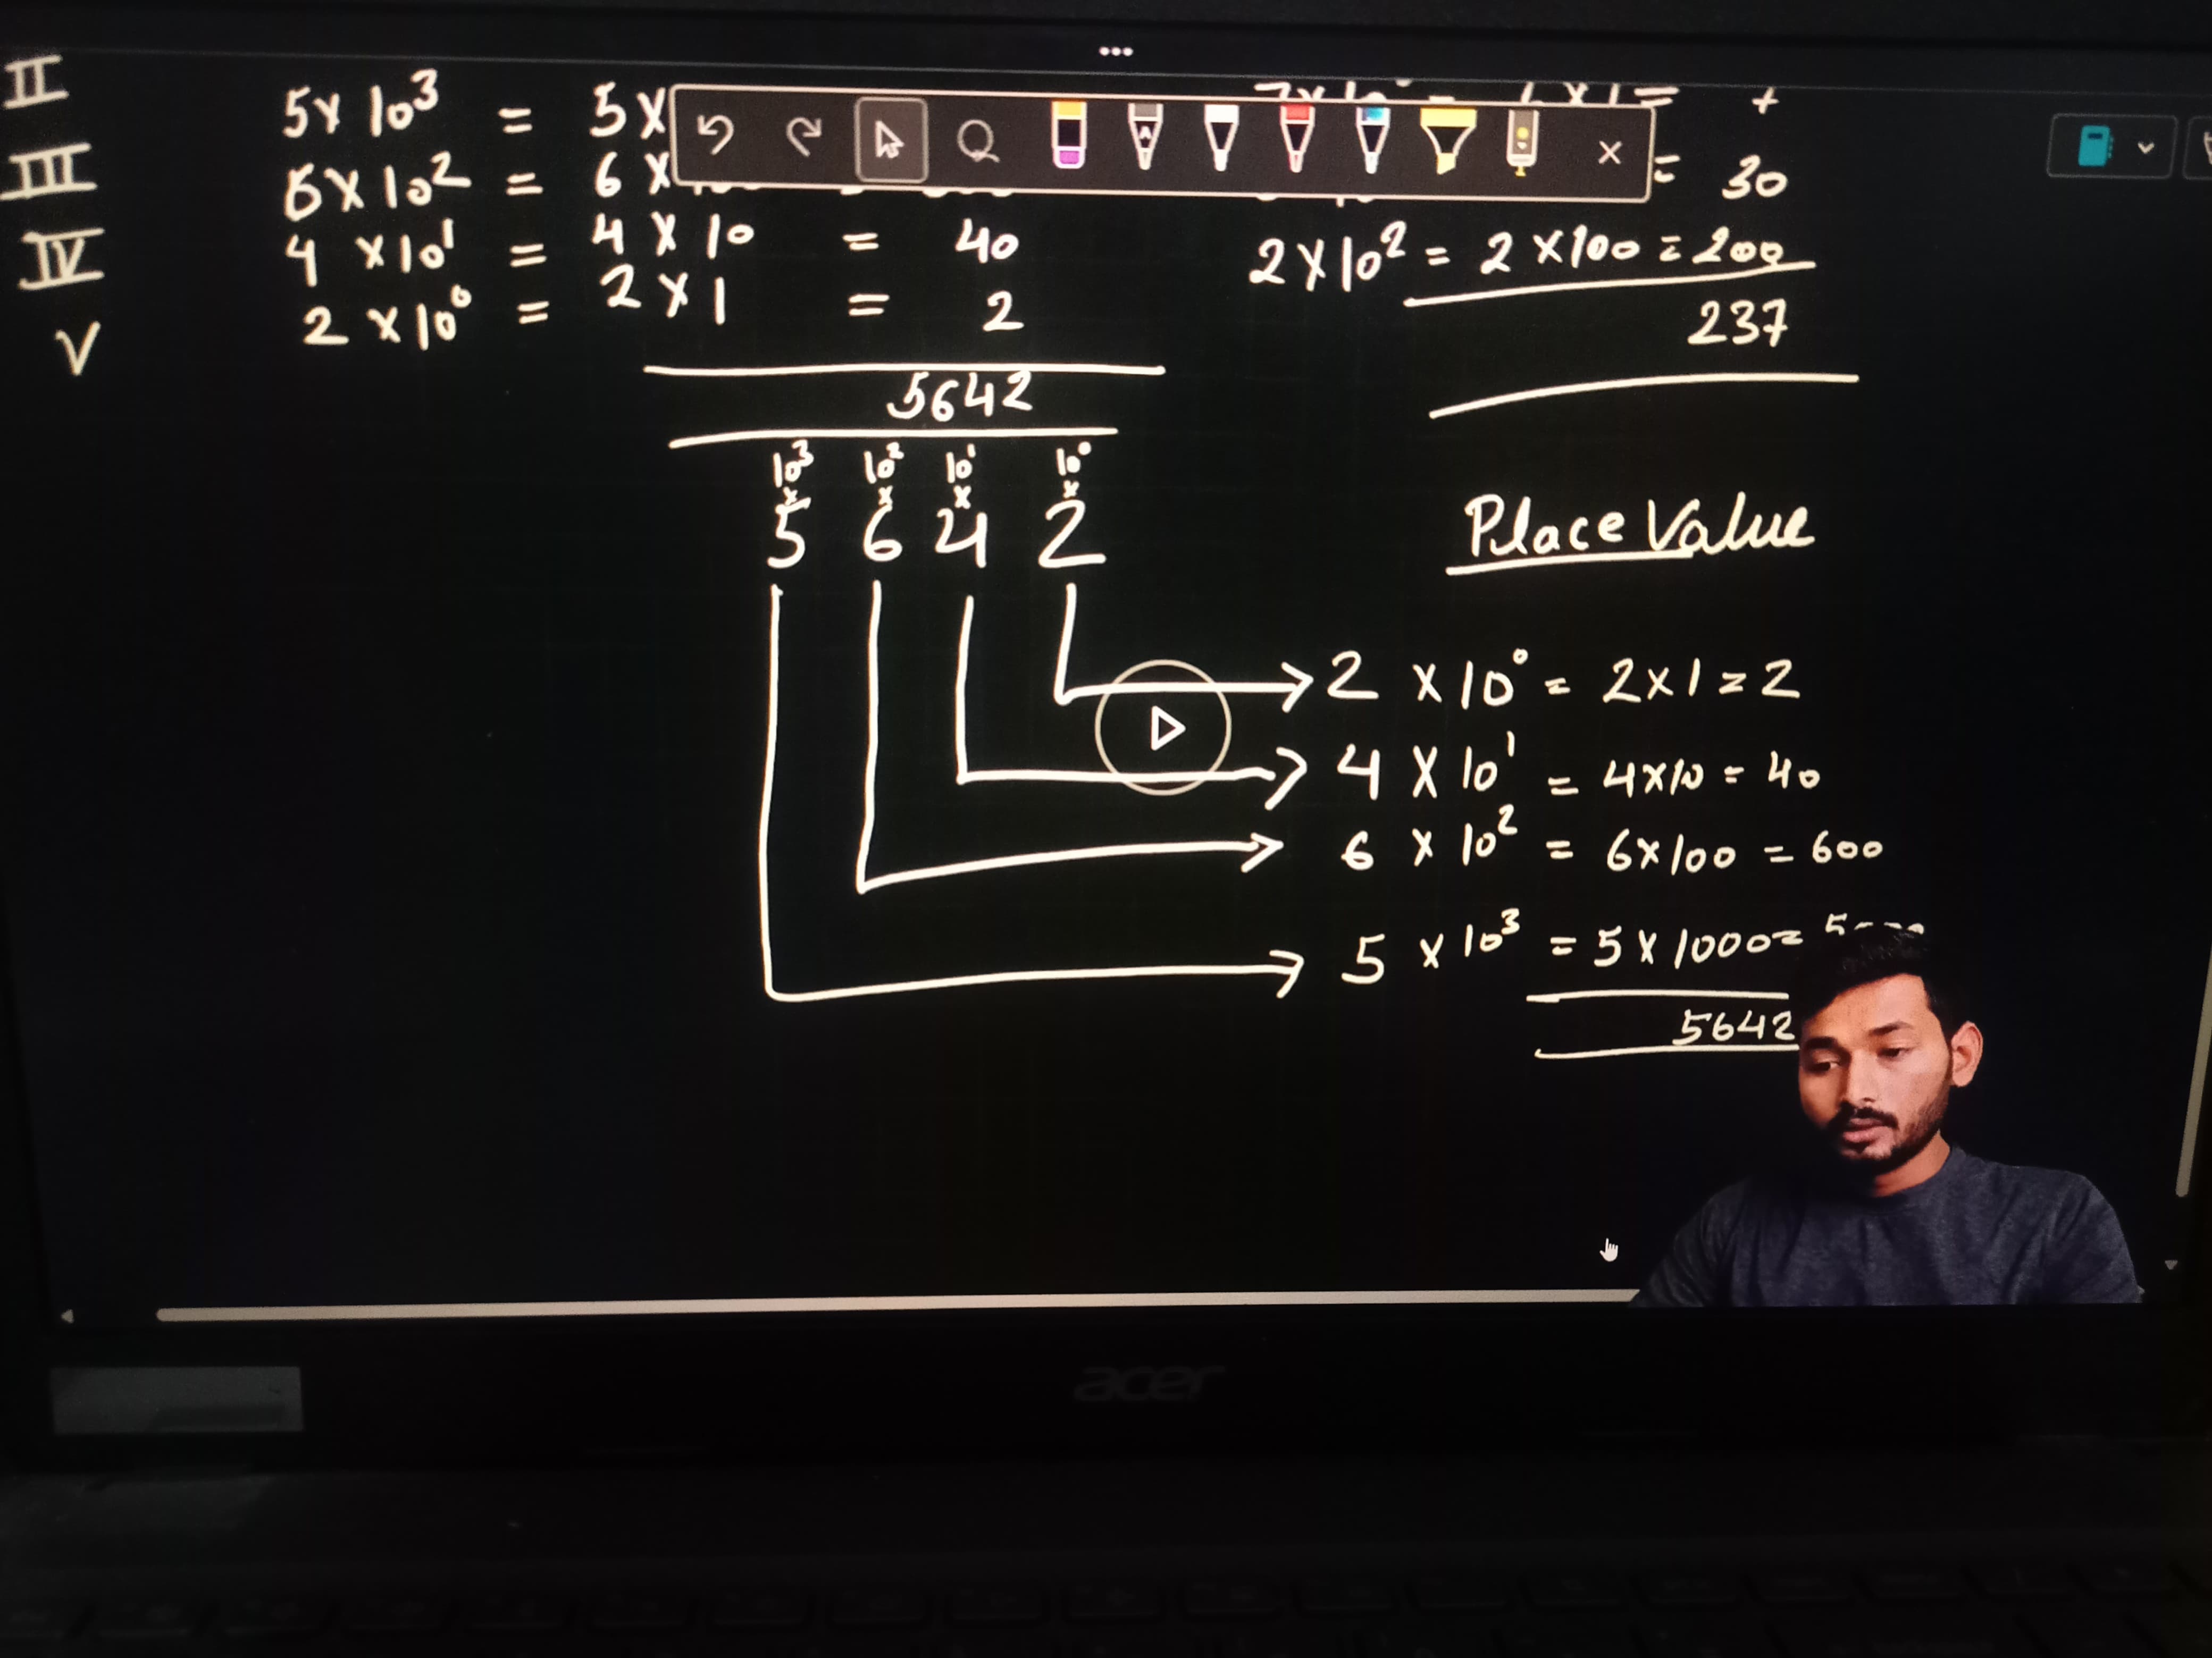 II
III
IV
V
5 × 10³ = 5 ×
6 × 10² = 6 ×
4 × 10¹ = 4 × 10 = 40
2 × 10⁰ = 2 × 1 = 2
5642
= 30
2 × 10² = 2 × 100 = 200
237
10³ 10² 10¹ 10⁰
× × × ×
5 6 4 2
Place Value
2 × 10⁰ = 2 × 1 = 2
4 × 10¹ = 4 × 10 = 40
6 × 10² = 6 × 100 = 600
5 × 10³ = 5 × 1000 =
5642
acer